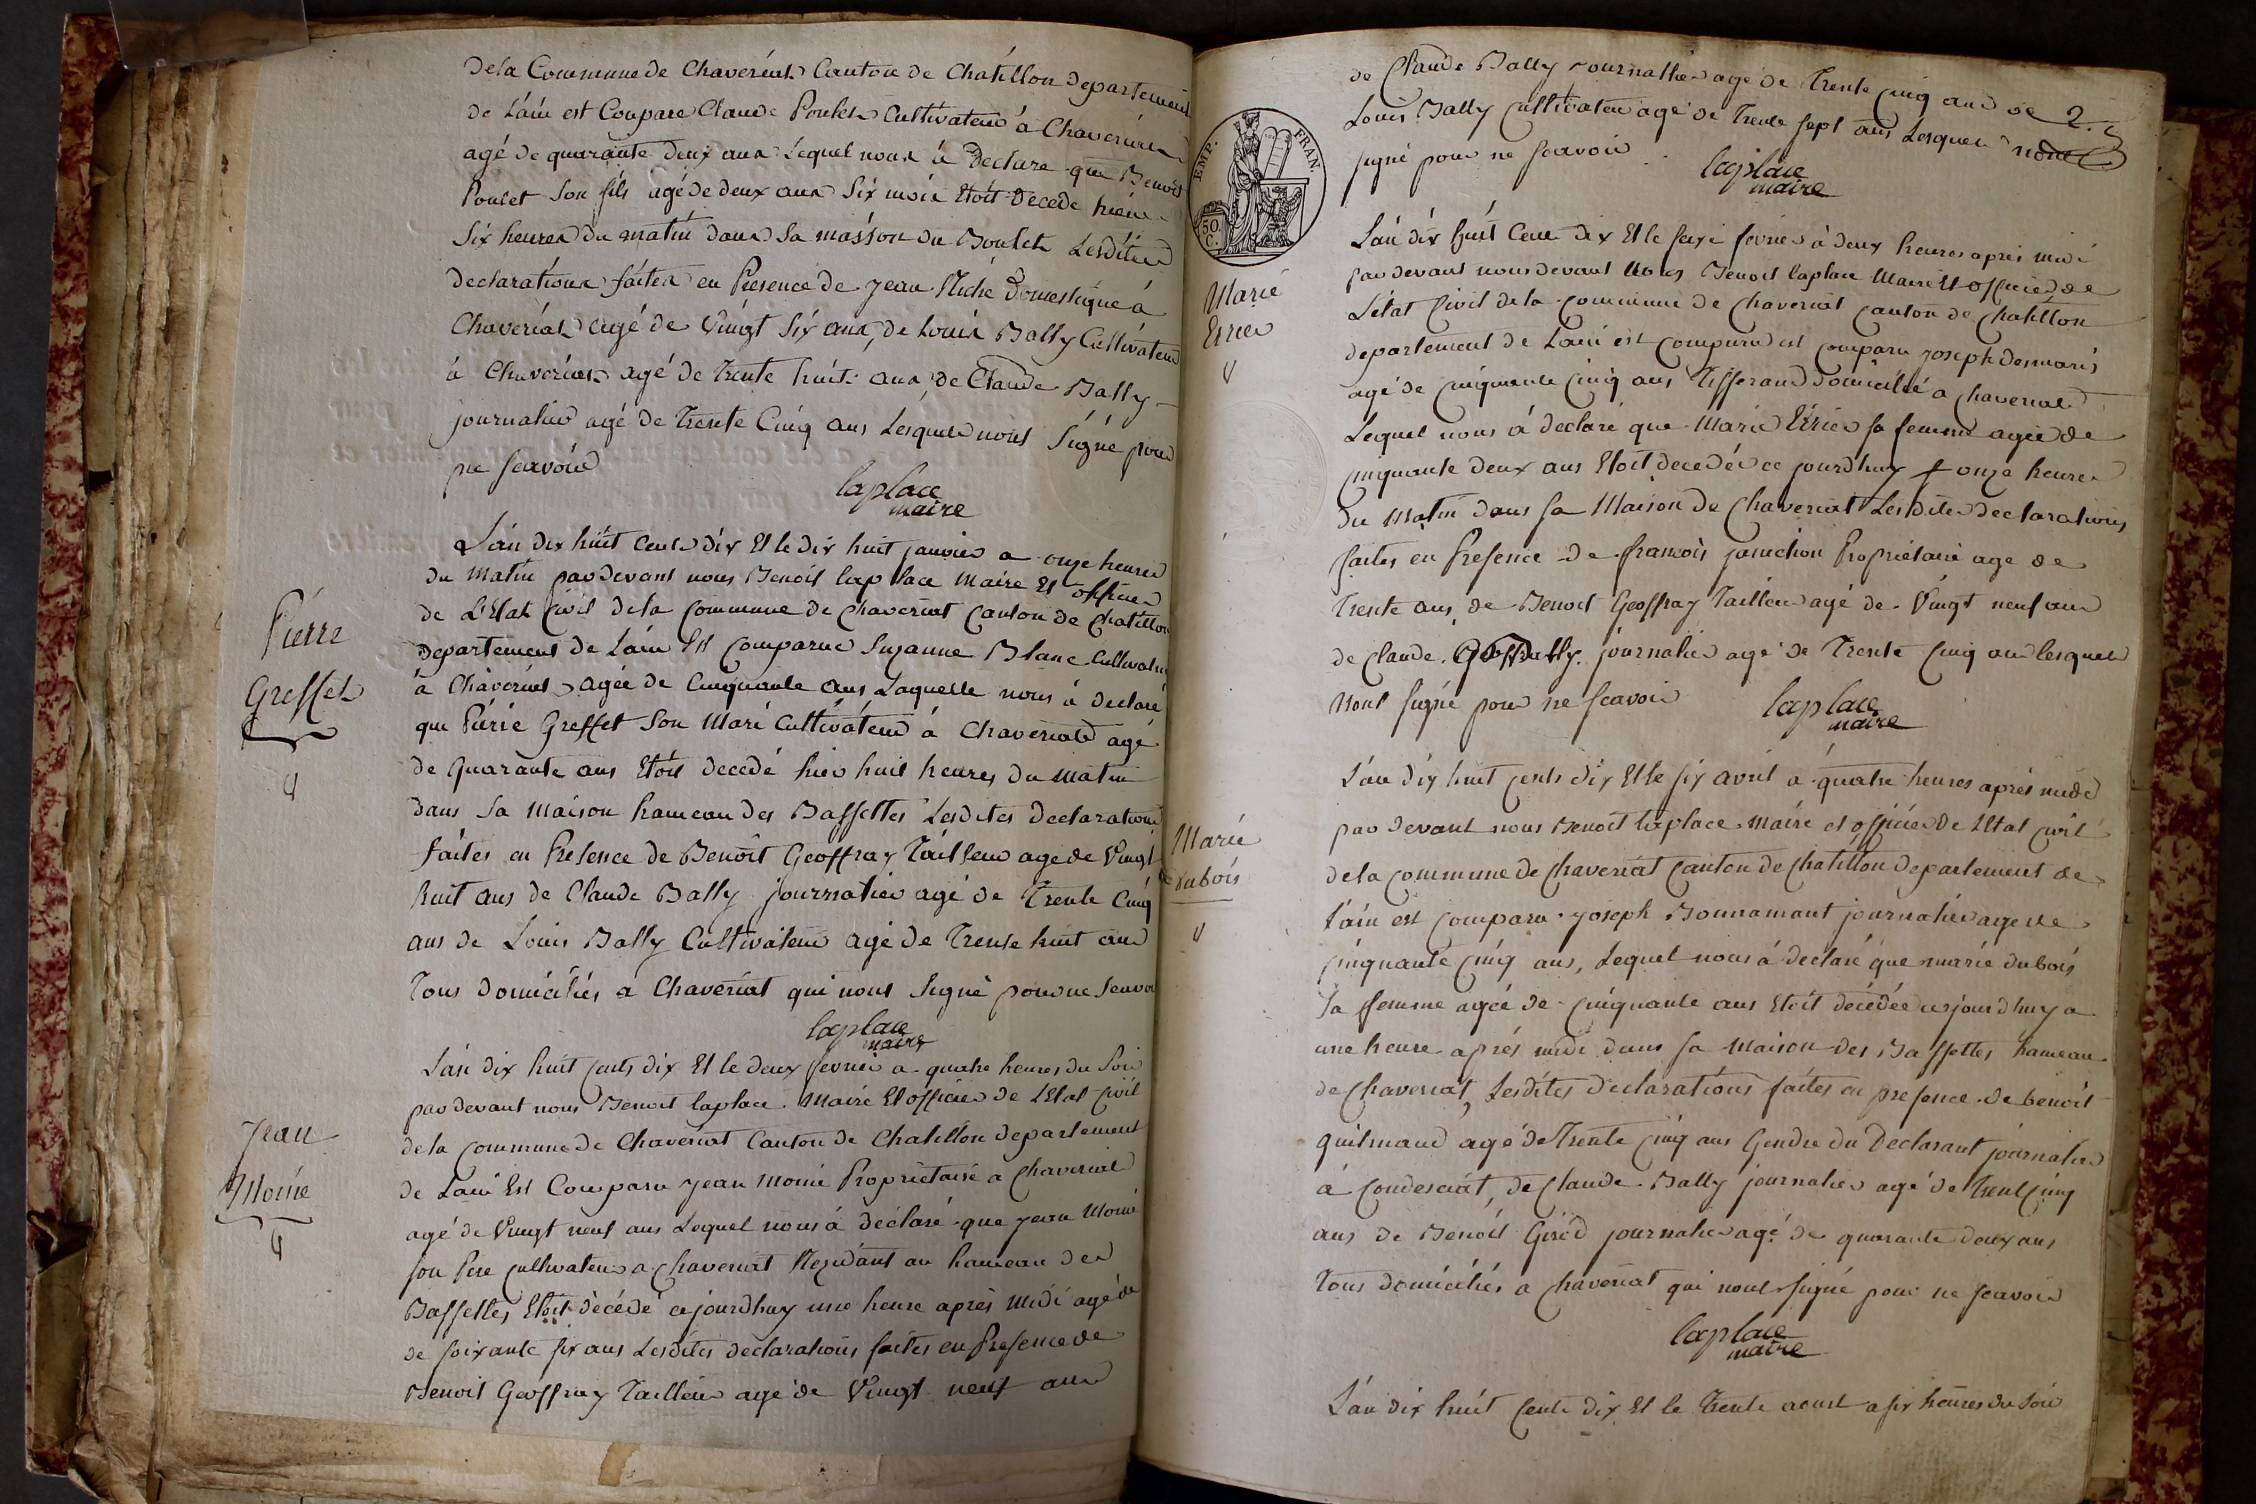 dela Commune de Chaveriat Canton de Chatillon departement
de L'ain est Compare Claude Poulet Cultivateur à Chaveriat
agé de quarante deux ans Lequel nous à Declare que Benoit
Poulet Son fils agé de deux ans Six mois Etoit Decede hier
Six heures du matin dans Sa maison du Boulet Lesdites
declarations faites en Presence de Jean Miché Domestique à
Chaveriat agé de Vingt Six ans, de Louis Bally Cultivateur
à Chaveriat agé de Trente huit ans de Claude Bally
journalier agé de Trente Cinq ans Lesquels nont Signé pour
ne scavoir
laplace
maire
L'an dix huit Cents dix Et le dix huit janvier a onze heures
du Matin par devant nous Benoit laplace Maire Et officier
de L'Etat Civil dela Commune de Chaveriat Canton de Chatillon
departement de L'ain Est Comparue Suzanne Blanc Cultivatri
à Chaveriat agée de Cinquante ans Laquelle nous à declaré
Pierre
Greffet
que Pierre Greffet Son Mari Cultivateur à Chaveriat agé
de Quarante ans Etoit decedé hier huit heures du Matin
dans Sa Maison hameau des Baffettes Lesdites Declarations
faites en Presence de Benoit Geoffray Tailleur agé de Vingt
huit ans de Claude Bally journalier agé de Trente Cinq
ans de Louis Bally Cultivateur agé de Trente huit ans
Tous Domiciliés a Chaveriat qui nont Signé pour ne Scavoi
laplace
maire
L'an dix huit Cents dix Et le deux fevrier a quatre heures du Soir
par devant nous Benoit laplace Maire Et officier de L'Etat Civil
dela Commune de Chaveriat Canton de Chatillon departement
Jean
Moine
de L'ain Est Comparu Jean Moine Proprietaire a Chaveriat
agé de Vingt neuf ans Lequel nous à déclaré que Jean Moine
son Pere Cultivateur a Chaveriat Residant au hameau des
Baffettes Etoit décédé cejourdhuy une heure après Midi agé de
de soixante six ans Lesdites declarations faites en Presence de
Benoit Geoffray Tailleur agé de Vingt neuf ans
de Claude Bally journallier agé de Trente Cinq ans de 2.
Louis Bally Cultivateur agé de Trente sept ans Lesquels nont
signé pour ne scavoir
laplace
maire
EMP. FRAN.
50.
C.
L'an dix huit Cent dix Et le seize fevrier à deux heures après midi
par devant nous devant Nous Benoit laplace Maire Et officier de
Marie
Errier
L'état Civil dela Commune de Chaveriat Canton de Chatillon
departement de L'ain est comparu est comparu joseph desmaris
agé de Cinquante Cinq ans Tisserand Domicilié a Chaveriat
Lequel nous à declaré que Marie Errier sa femme agée de
cinquante deux ans Etoit decedée ce jourdhuy à onze heures
du Matin dans sa Maison de Chaveriat Lesdites declarations
faites en Presence de francois janichon Propriétaire age de
Trente ans, de Benoit Geoffray Tailleur agé de Vingt neuf ans
de Claude Bally journalier agé de Trente Cinq ans lesquels
Nont signé pour ne scavoir
laplace
maire
L'an dix huit cents dix Et le six avril a quatre heures après midi
par devant nous Benoit laplace Maire et officier de L'Etat civil
Marie
dubois
dela Commune de Chaveriat Canton de Chatillon departement de
l'ain est comparu joseph Bonnamant journalier age de
cinquante cinq ans, Lequel nous à declaré que marie dubois
sa femme agée de cinquante ans Etoit décédée cejourdhuy a
une heure après midi dans sa Maison des Baffettes hameau
de Chaveriat, Lesdites declarations faites en presence de benoit
guilmaud agé de Trente Cinq ans Gendre du Declarant journalier
à Condesciat, de Claude Bally journalier agé de Trente Cinq
ans de Benoit Girod journalier agé de quarante deux ans
Tous domiciliés a Chaveriat qui nont signé pour ne scavoir
laplace
maire
L'an dix huit Cents dix Et le Trente aoust a six heures du Soir